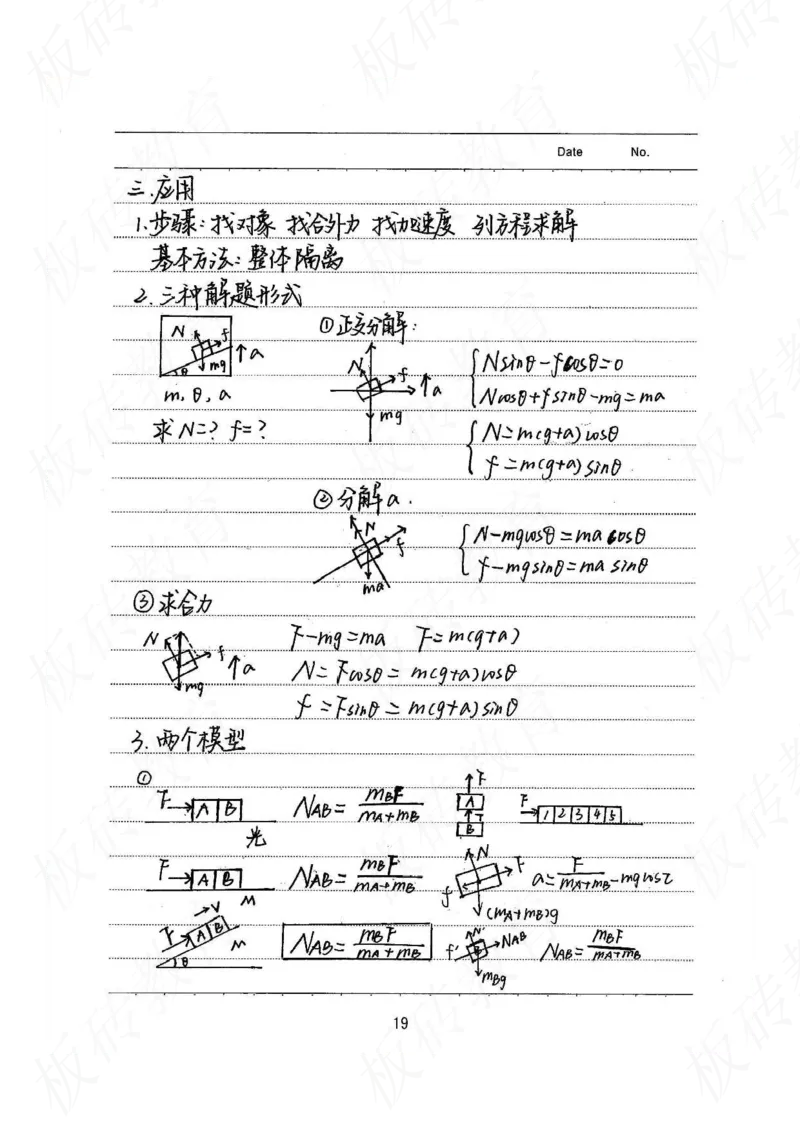 Date No.
三.应用
1.步骤:找对象 找合外力 找加速度 列方程求解
基本方法:整体隔离
2.三种解题形式
N f a
θ mg
m, θ, a
求N=? f=?
①正交分解:
N f a
mg
Nsinθ-fcosθ=0
Ncosθ+fsinθ-mg=ma
N=m(g+a)cosθ
f=m(g+a)sinθ
②分解a.
N f
ma
N-mgcosθ=macosθ
f-mgsinθ=masinθ
③求合力
N f a
mg
F-mg=ma F=m(g+a)
N=Fcosθ=m(g+a)cosθ
f=Fsinθ=m(g+a)sinθ
3.两个模型
①
F A B
光
NAB= mBF/mA+mB
F
A
T
B
F 1 2 3 4 5
F A B
M
NAB= mBF/mA+mB
N F
f
(mA+mB)g
a= F/mA+mB -mgcos
V
F A B M
θ
NAB= mBF/mA+mB
N' NAB
f' B
mBg
NAB= mBF/mA+mB
19
板砖教育